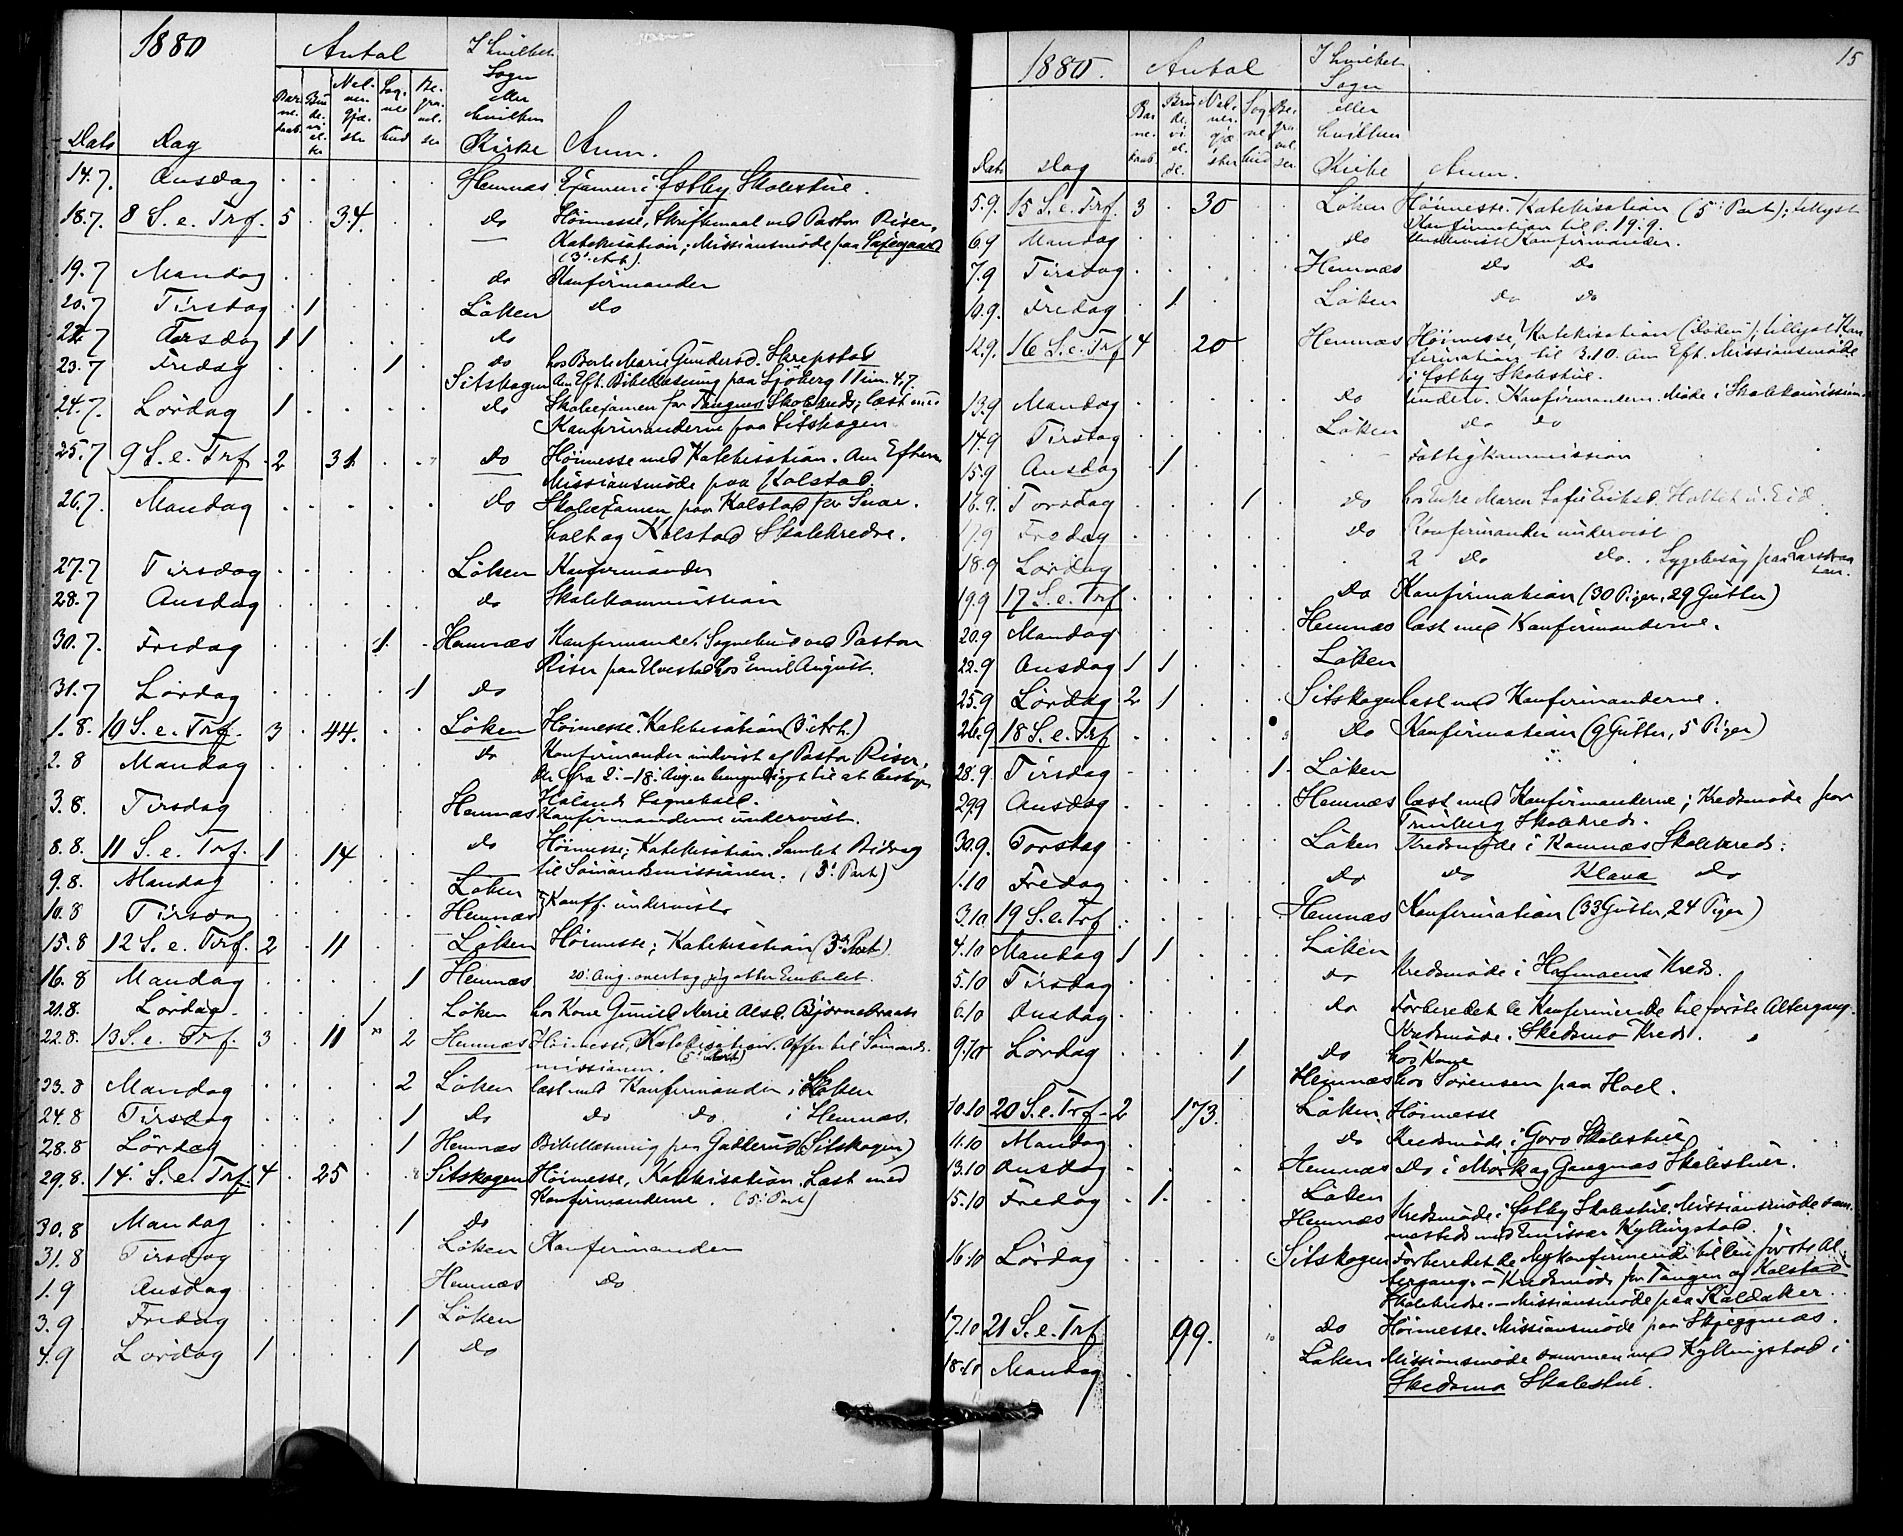 1880
Antal
I hvilket
Sogn
eller
hvilken
Kirke
Dato Dag Anm.
14.7. Onsdag Hemnæs Exjamen i Østby Skolestue.
18.7. 8 S. e. Trf. 5 34. do Höimesse, Skriftemaal ved Pastor Riser,
Katekisation; Missionsmöde paa
19.7 Mandag do Konfirmander
20.7 Tirsdag 1 Löken do
22.7 Torsdag 1 1 do
23.7 Fredag 1 do hos Berte Marie Gundersd. Skrepstad
Sitskogen Am Eft. Bibellæsning paa Sjöberg
24.7. Lördag 1 do Skoleexamen for Tangens Skolekreds; læst med
Konfirmanderne paa Sitskogen.
25.7 9 S. e. Trf. 2 31 do Höimesse med Katekisation. Om Efterm
Missionsmöde paa Kolstad.
26.7. Mandag do Skoleexamen paa Kolstad for
holt og Kolstad Skolekredse.
27.7 Tirsdag Löken Konfirmander
28.7 Onsdag do Skolekommission
30.7. Fredag 1. Hemnæs Konfirmander. Sognebud ved Pastor
Riser paa hos Emil August.
31.7 Lördag 1 do
1.8. 10 S. e. Trf. 3 44. Löken Höimesse. Katekisation (3' Art.)
2.8 Mandag do Konfirmander undvist af Pastor Riser,
der fra 2.-18. Aug. er til at besörge
Hölands Sognekald.
3.8. Tirsdag Hemnæs Konfirmanderne undervist.
8.8. 11 S. e. Trf. 1 14 do Höimesse; Katekisation. Samlet Bidrag
til Sömandsmissionen. (3' Part)
9.8. Mandag Löken
10.8 Tirsdag Hemnæs } Konff. undervist
15.8 12 S. e. Trf. 2 11 Löken Höimesse; Katekisation (3' Part).
16.8 Mandag 1 Hemnæs 20. Aug. overtog jeg atter Embedet.
21.8. Lördag. 1 Löken hos Kone Gunild Marie Olsd. Björnebraate
22.8. 13 S. e. Trf. 3 11 2 Hemnæs Höimesse, Katekisation. Offer til Sömands-
missionen.
23.8 Mandag 2 Löken læst med Konfirmander i Löken
24.8 Tirsdag 1 do do do i Hemnæs.
28.8 Lördag 1 Hemnæs Bibellæsning paa (Sitskogen)
29.8. 14. S. e. Trf. 4 25 Sitskogen Höimesse, Katekisation. Læst med
Konfirmanderne. (5' Part)
30.8 Mandag 1 do
31.8 Tirsdag Löken Konfirmander
1.9 Onsdag Hemnæs do
3.9 Fredag 1 Löken
4.9 Lördag 1 1 do
15
1880.
Antal
I hvilket
Sogn
eller
hvilken
Kirke
Dato Dag Anm.
5.9. 15 S. e. Trf. 3 30 Löken Höimesse. Katekisation (5' Part); tillyst
Konfirmation til d. 19.9.
6.9 Mandag do Undervist Konfirmander.
7.9 Tirsdag Hemnæs do do
10.9. Fredag 1 Löken do do
12.9. 16 S. e. Trf 4 20 Hemnæs Höimesse, Katekisation; tillyst Kon-
firmation til 3.10. Om Eft. Missionsmöde
i Østby Skolestue.
13.9 Mandag do underv. Konfirmandern. Möde i Skolekommission.
14.9 Tirsdag Löken do do
15.9 Onsdag 1 Fattigkommission
16.9. Torsdag 1 do hos Enke Maren Sofie Eriksd.
17.9 Fredag do Konfirmander undervist
18.9 Lördag do do. Sygebesög paa
19.9 17 S. e. Trf. do Konfirmation (30 Piger, 29 Gutter)
20.9 Mandag Hemnæs læst med Konfirmanderne.
22.9 Onsdag 1 1 Löken
25.9 Lördag 2 1 Sitskogen læst med Konfirmanderne.
26.9 18 S. e. Trf do Konfirmation (9 Gutter, 5 Piger)
28.9. Tirsdag 1. Löken
29.9 Onsdag Hemnæs læst med Konfirmanderne; Kredsmöde for
Skolekreds.
30.9. Torsdag Löken Kredsmöde i Kamnæs Skolekreds.
1.10 Fredag do do Kleva do
3.10 19 S. e. Trf. Hemnæs Konfirmation (33 Gutter, 24 Piger)
4.10 Mandag 1 1 Löken
5.10 Tirsdag do Kredsmöde i Hofmoens Kreds.
6.10 Onsdag do Forberedet de Konfirmerede til förste Altergang.
Kredsmöde. Skedsmo Kreds.
9.10 Lördag 1 do hos Kone
1 Hemnæs hos Sörensen paa Hoel.
10.10 20 S. e. Trf. 2 173. Löken Höimesse
11.10 Mandag do Kredsmöde i Goro Skolestue
13.10 Onsdag Hemnæs do i Mörk og Gangnæs Skolestuer.
15.10 Fredag 1. Löken Kredsmöde i Østby Skolestue. Missionsmöde sam-
Hemnæs mesteds med Emissær Kyllingstad.
16.10 Lördag Sitskogen Forberedet de Nykonfirmerede til förste Al-
tergang. - Kredsmöde for Tangen og Kolstad
Skolekredse. - Missionsmöde paa Kaldaker.
17.10 21 S. e. Trf. 99. do Höimesse. Missionsmöde paa Skjeggnæs.
18.10 Mandag Löken Missionsmöde sammen med Kyllingstad i
Skedsmo Skolestue.